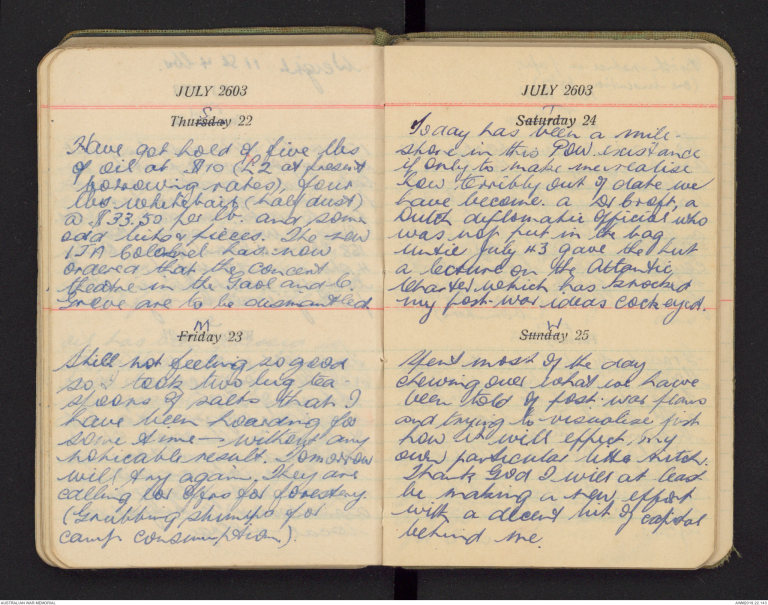 JULY 2603
S
Thursday 22
Have got hold of five lbs
of oil at $10 (£2 at present
borrowing rates), four
lbs whitebait (half dust)
@ $33.50 per lb. and some
odd bits & pieces. The new
IJA Colonel has now
ordered that the concert
theatre in the Gaol and C.
Grove are to be dismantled.
M
Friday 23
Still not feeling so good
so I took two big tea-
spoons of salts that I
have been hoarding for
some time — without any
noticable result. Tomorrow
will try again. They are
calling for Offrs for forestry.
(Grubbing stumps for
camp consumption)
JULY 2603
T
Saturday 24
Today has been a mile-
stone in this POW existance
if only to make me realise
how terribly out of date we
have become. a Dr Croft, a
Dutch diplomatic official who
was not put in the bag
until July 43 gave the hut
a lecture on the Atlantic
Charter which has knocked
my post-war ideas cockeyed.
W
Sunday 25
Spent most of the day
chewing over what we have
been told of post war plans
and trying to visualise just
how it will effect my
own particular little hutch.
Thank God I will at least
be making a new effort
with a decent bit of capital
behind me.
AUSTRALIAN WAR MEMORIAL